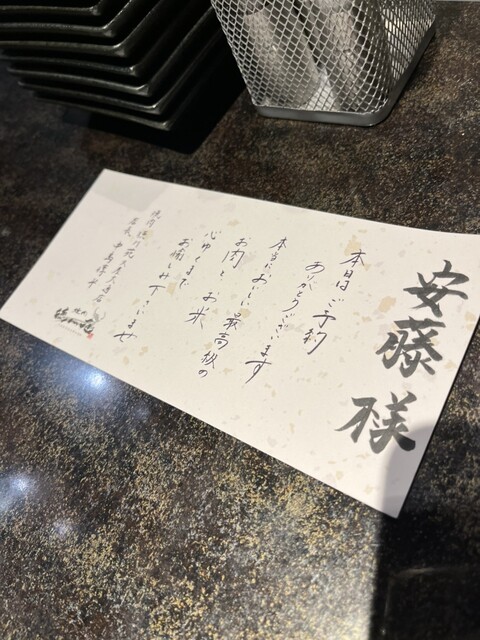 安藤様
本日はご予約
ありがとうございます
本当においしい最高級の
お肉と、お米
心ゆくまで
お楽しみ下さいませ
店長